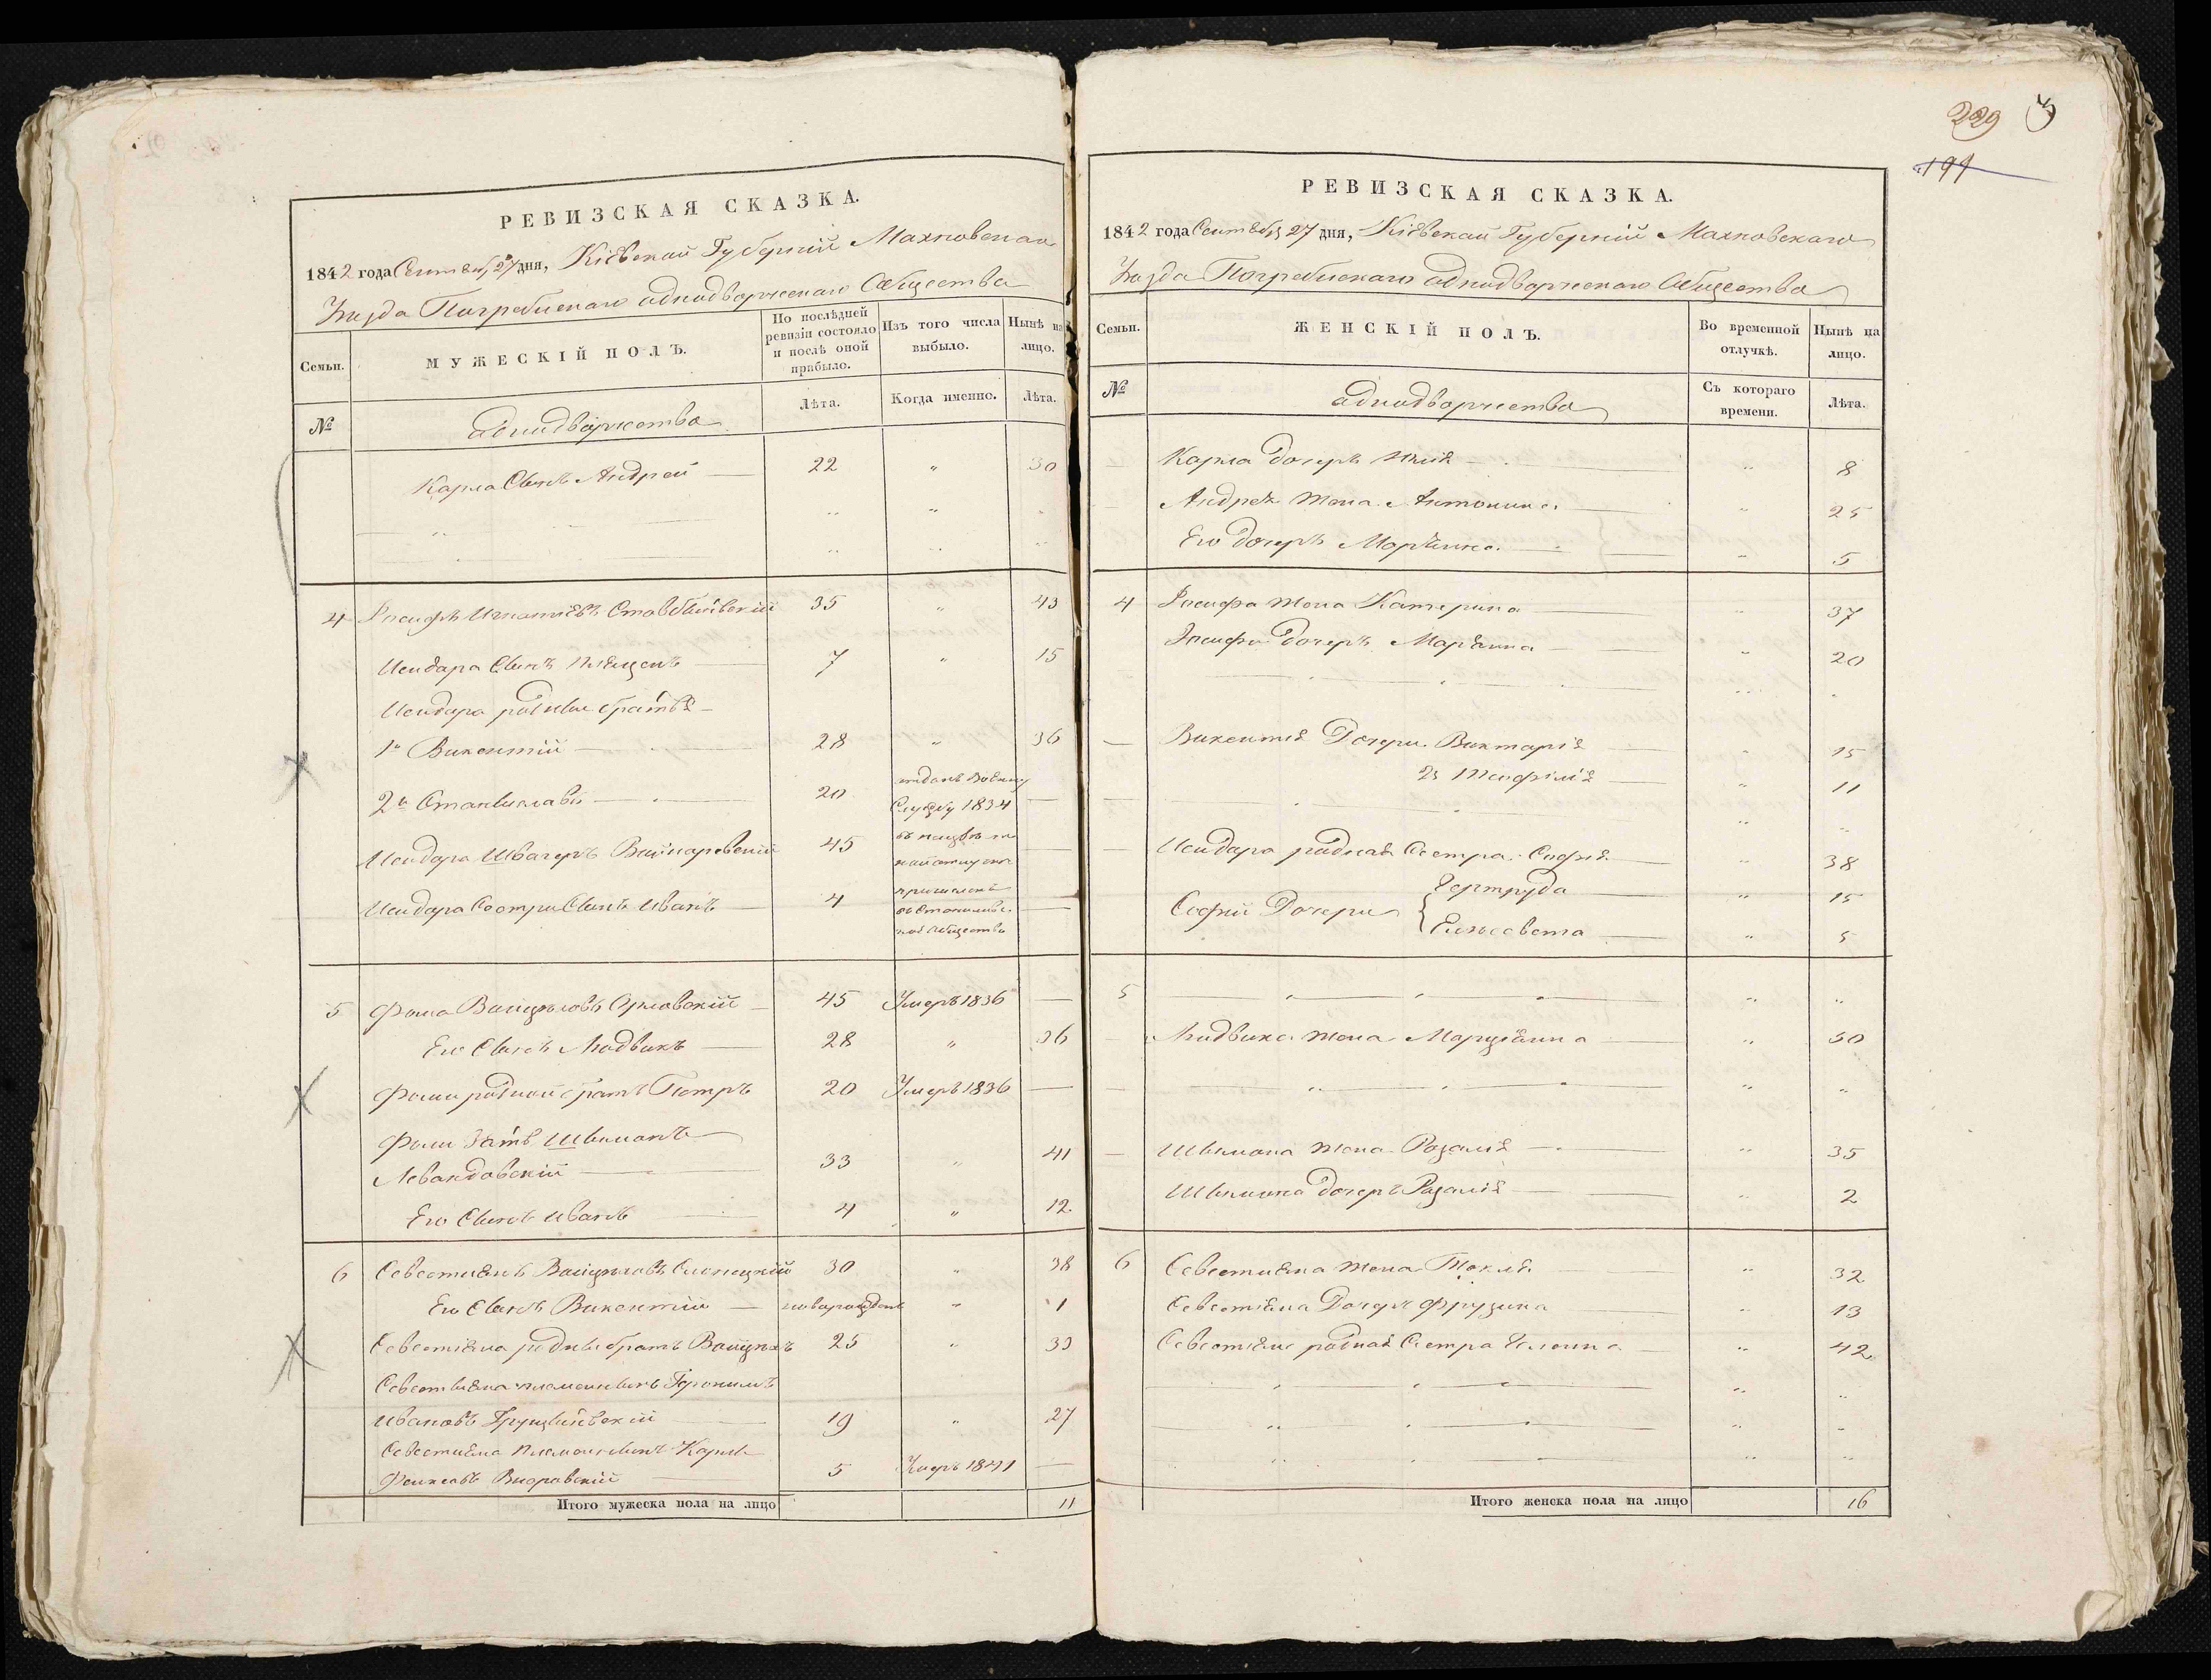 229
199
РЕВИЗСКАЯ СКАЗКА.
1842 года Сентяб 27 дня, Кіевской Губерніи Махновскаго
Уѣзда Погребискаго однодворческаго Общества
Семьи.
МУЖЕСКІЙ ПОЛЪ.
По послѣдней ревизіи состояло и послѣ оной прибыло.
Изъ того числа выбыло.
Нынѣ на лицо.
№
однодворчества
Лѣта.
Когда именно.
Лѣта.
Карла Сынъ Андрей 22 " 30
4 Іосифъ Игнатіевъ 35 " 43
Исидора Сынъ 7 " 15
Исидора родные братья
1й Викентій 28 " 36
2й Станиславъ 20 отданъ Вовенную
Службу 1834
Исидора Швагеръ 45
Исидора Сестры Сынъ Иванъ 4 причисленъ
Общество
5 Фома Орловскій 45 Умеръ 1836
Его Сынъ Людвикъ 28 " 36
Фомы родной братъ Петръ 20 Умеръ 1836
Фомы зять Шимонъ
Левандовскій 33 " 41
Его Сынъ Иванъ 4 " 12
6 Севестіянъ 30 " 38
Его Сынъ Викентій новорожденъ " 1
Севестіяна родный братъ 25 " 33
Севестіяна племянникъ Геронимъ
Ивановъ 19 " 27
Севестіяна племянникъ Карлъ
5 Умеръ 1841
Итого мужеска пола на лицо 11
РЕВИЗСКАЯ СКАЗКА.
1842 года Сентября 27 дня, Кіевской Губерніи Махновскаго
Уѣзда Погребискаго однодворческаго Общества
Семьи.
ЖЕНСКІЙ ПОЛЪ.
Во временной отлучкѣ.
Нынѣ на лицо.
№
однодворчества
Съ котораго времени.
Лѣта.
Карла дочерь " 8
Андрея жена Антонина " 25
Его дочерь Маріянна " 5
4 Іосифа жена Катерина " 37
Іосифа дочерь Маріянна " 20
Викентія Дочери Викторія " 15
2я Теофилія " 11
Исидора родная Сестра Софія " 38
Софіи Дочери { Гертруда " 15
Елисавета " 5
5
Людвика жена Марціянна " 30
Шимона жена Розалія " 35
Шимона дочерь Розалія " 2
6 Севестіяна жена Текля " 32
Севестіяна Дочерь Фрузина " 13
Севестіяна родная Сестра " 42
Итого женска пола на лицо 16